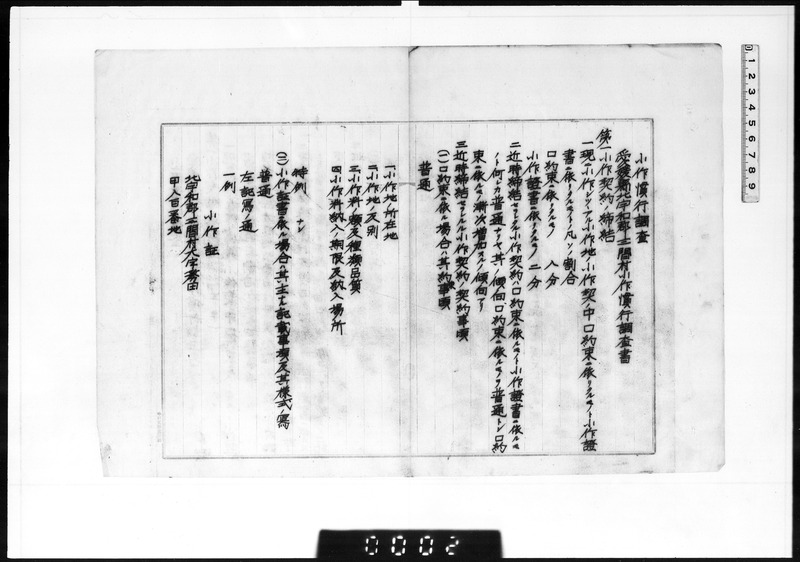 小作慣行調査
愛媛縣北宇和郡二間村小作慣行調査書
第一小作契約ノ締結
一現ニ小作シツヽアル小作地ノ小作契約中口約束ニ依リタルモノト小作證
書ニ依リタルモノトノ凡ソノ割合
口約束ニ依ルモノ 八分
小作證書ニ依ルモノ 二分
二近時締結セラルル小作契約ハ口約束ニ依ルモノト小作證書ニ依ルモ
ノト何レカ普通ナリヤ其ノ傾向口約束ニ依ルモノヲ普通トシ口約
束ニ依ルモノ漸次増加スルノ傾向アリ
三近時締結セラルル小作契約ノ契約事項
(一)口約束ニ依ル場合ハ其ノ約束事項
普通
一小作地ノ所在地
二小作地ノ反別
三小作料ノ額及種類品質
四小作料納入ノ期限及納入場所
特例 ナシ
(二)小作證書ニ依ル場合ハ其ノ主ナル記載事項及其ノ様式ノ寫
普通
左記寫ノ通
一例
小作証
北宇和郡二間村大字務田
甲八百番地
0002
0 1 2 3 4 5 6 7 8 9